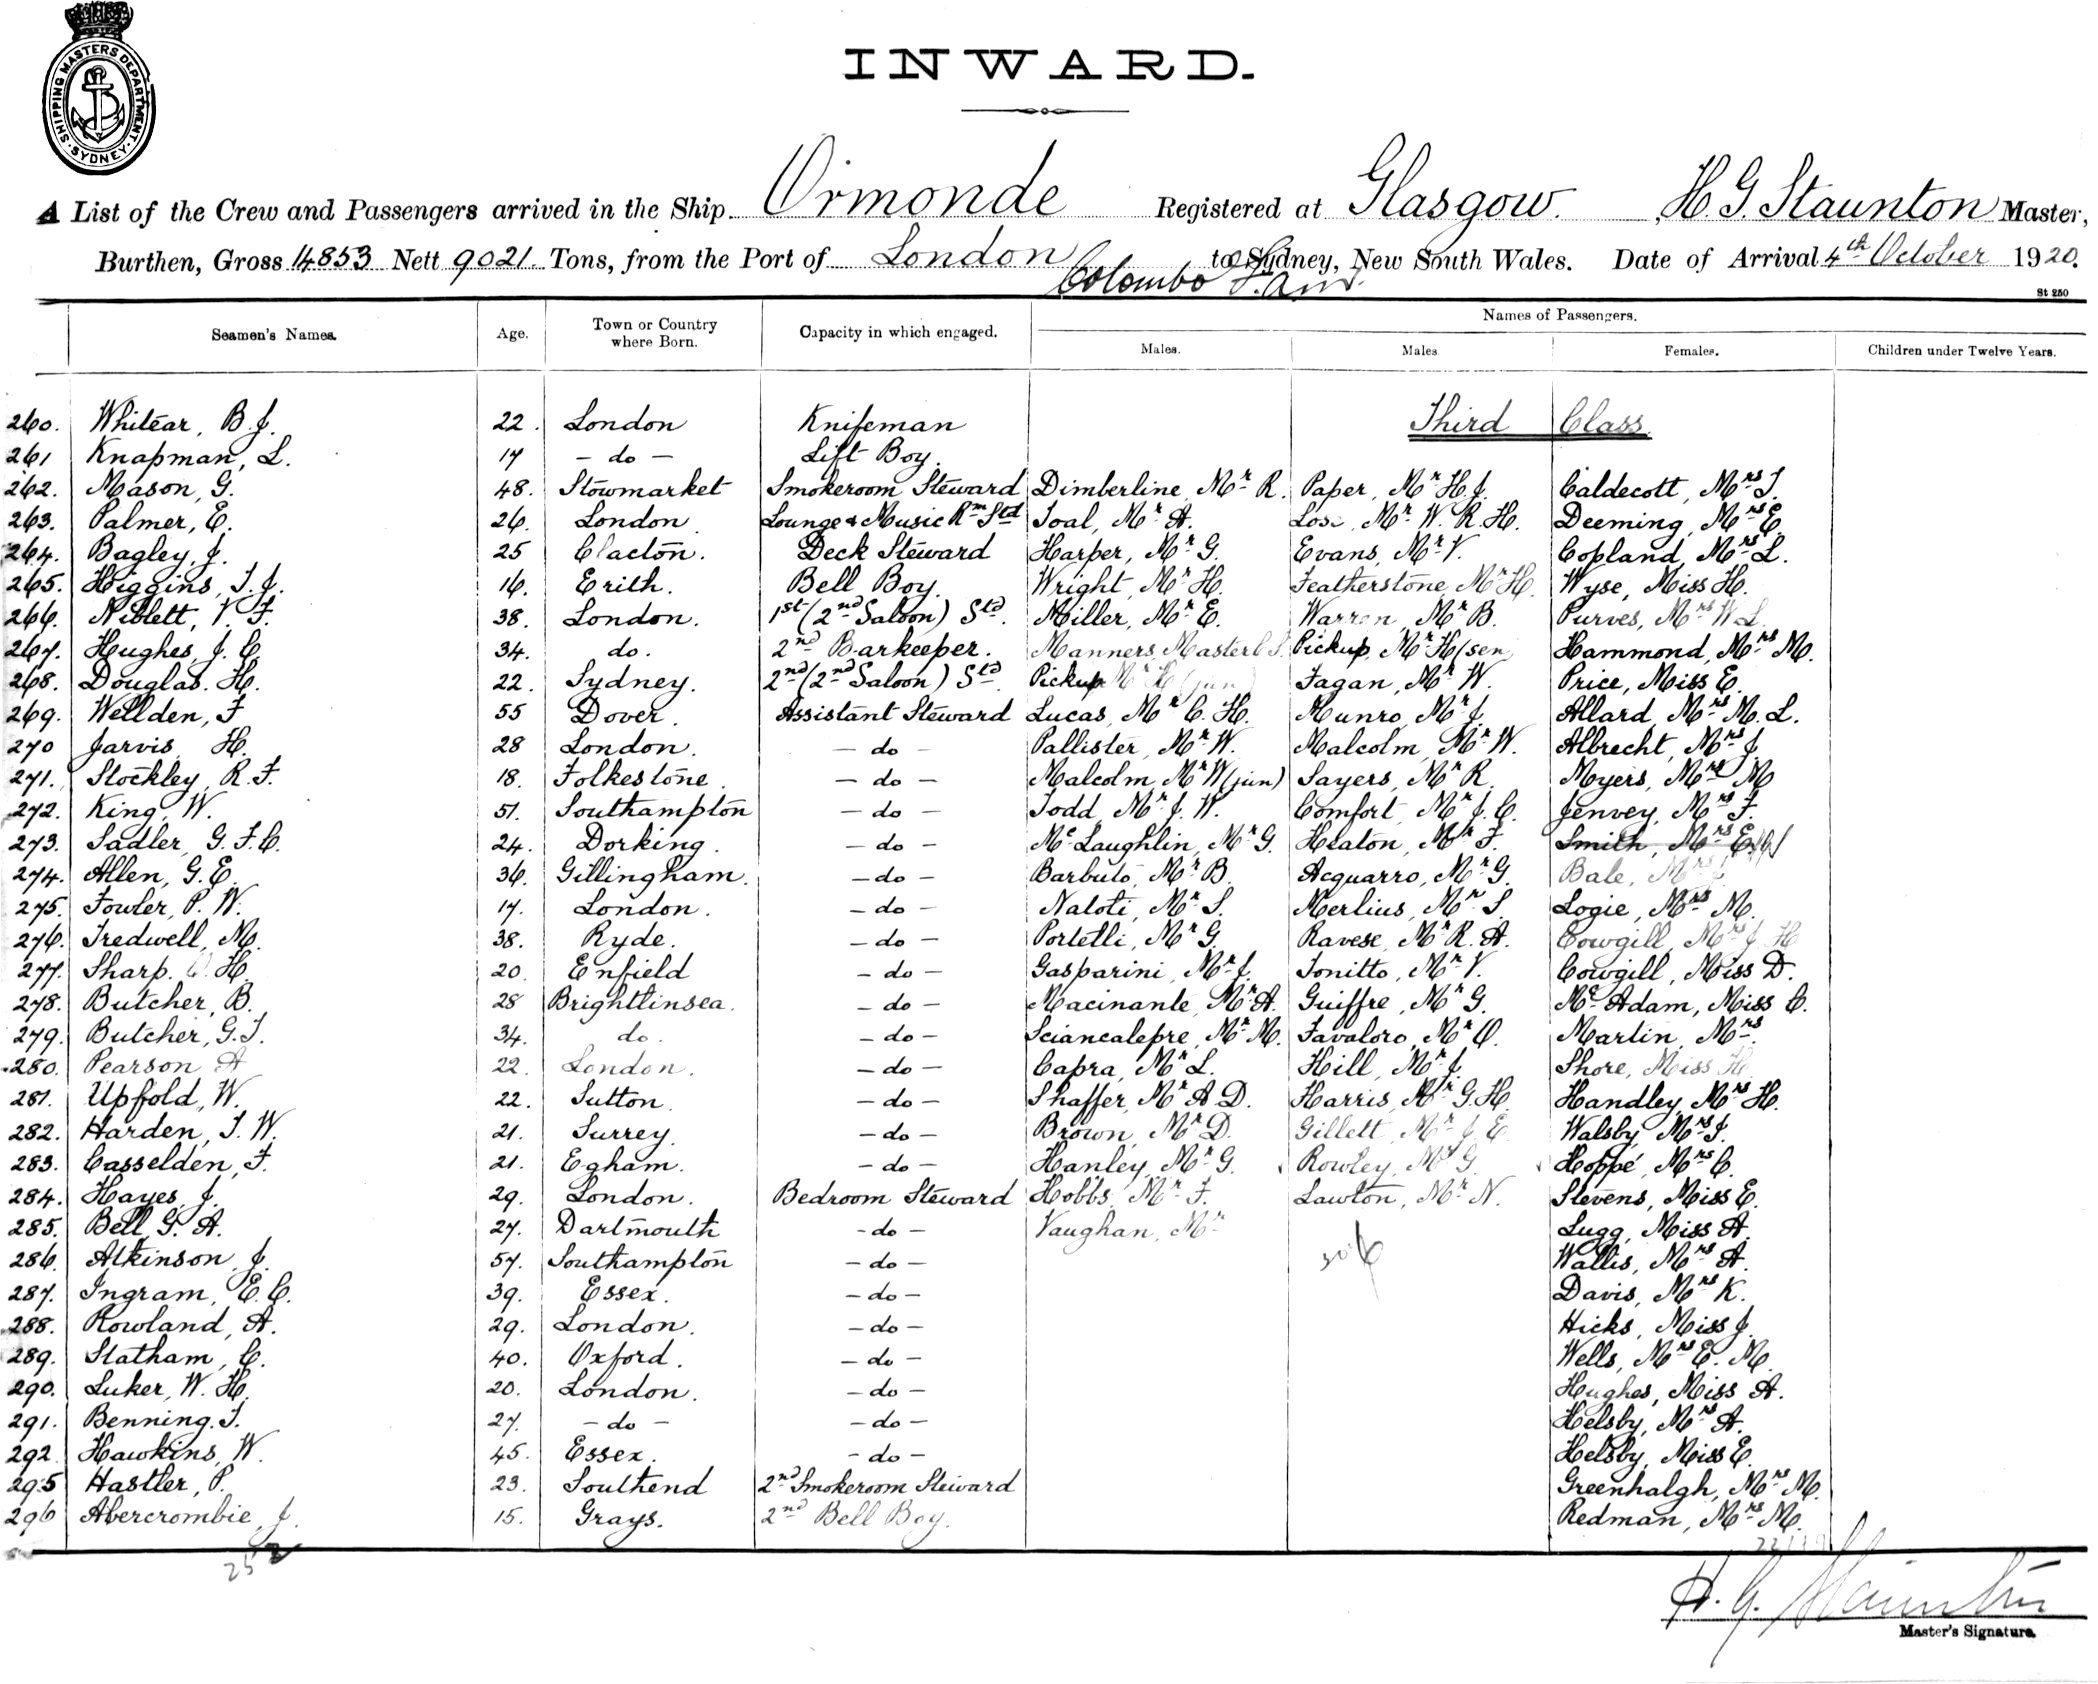 SHIPPING MASTERS DEPARTMENT. SYDNEY.
INWARD.
A List of the Crew and Passengers arrived in the Ship Ormonde Registered at Glasgow. H. G. Staunton Master,
Burthen, Gross 14853 Nett 9021 Tons, from the Port of London to Sydney, New South Wales. Date of Arrival 4th October 1920.
Colombo
St 250
Seamen's Names. Age. Town or Country where Born. Capacity in which engaged. Names of Passengers.
Males. Males. Females. Children under Twelve Years.
260. Whitear, B. J. 22. London Knifeman Third Class.
261 Knapman, L. 17 - do - Lift Boy.
262. Mason, G. 48. Stowmarket Smokeroom Steward Dimberline, Mr R. Paper, Mr H. J. Caldecott, Mrs T.
263. Palmer, E. 26. London Lounge & Music Rm Std Toal, Mr A. Mr W. R. H. Deeming, Mrs E.
264. Bagley, J. 25 Clacton. Deck Steward Harper, Mr G. Evans, Mr V. Copland, Mrs L.
265. Higgins, T. J. 16. Erith. Bell Boy. Wright, Mr H. Featherstone, Mr H. Wyse, Miss H.
266. Niblett, V. F. 38. London. 1st (2nd Saloon) Std. Miller, Mr E. Warren, Mr B. Purves, Mrs W L
267. Hughes, J. C. 34. do. 2nd Barkeeper. Manners, Master Pickup, Mr H (sen Hammond, Mrs M.
268. Douglas. H. 22. Sydney. 2nd (2nd Saloon) Std Pickup Mr H (jun) Fagan, Mr W. Price, Miss E.
269. Wellden, F 55 Dover. Assistant Steward Lucas, Mr C. H. Munro, Mr J. Allard, Mrs M. L.
270 Jarvis, H. 28 London. - do - Pallister, Mr W. Malcolm, Mr W. Albrecht, Mrs J.
271. Stockley, R. F. 18. Folkestone. - do - Malcolm, Mr W (jun) Sayers, Mr R. Myers, Mrs M
272. King, W. 51. Southampton - do - Todd, Mr J. W. Comfort, Mr J. C. Jenvey, Mrs F.
273. Sadler, G. F. C. 24. Dorking. - do - McLaughlin, Mr G. Heaton, Mr F. Smith, Mrs E
274. Allen, G. E. 36. Gillingham. - do - Barbuto, Mr B. Acquarro, Mr G. Bale, Mrs
275. Fowler, P. W. 17. London. - do - Naloti, Mr S. Merlius, Mr S. Logie, Mrs M.
276. Tredwell, M. 38. Ryde. - do - Portelli, Mr G. Ravese, Mr R. A. Cowgill, Mrs J. H
277. Sharp. H. 20. Enfield - do - Gasparini, Mr J. Tonitto, Mr V. Cowgill, Miss D.
278. Butcher, B. 28 Brightlinsea. - do - Macinante, Mr A. Guiffre, Mr G. McAdam, Miss C.
279. Butcher, G. T. 34. do. - do - Sciancalepre, Mr M. Favaloro, Mr O. Martin, Mrs.
280. Pearson A 22. London. - do - Capra, Mr L. Hill, Mr J. Shore, Miss H
281. Upfold, W. 22. Sutton. - do - Shaffer, Mr A D. Harris, Mr G. H. Handley, Mrs H.
282. Harden, T. W. 21. Surrey. - do - Brown, Mr D. Gillett, Mr J E. Walsby, Mrs J.
283. Casselden, F. 21. Egham. - do - Hanley, Mr G. Rowley, Mr G. Hoppé, Mrs C.
284. Hayes, J. 29. London. Bedroom Steward Hobbs, Mr F. Lawton, Mr N. Stevens, Miss E.
285. Bell, G. A. 27. Dartmouth - do - Vaughan, Mr Lugg, Miss A.
286. Atkinson, J. 57. Southampton - do - Wallis, Mrs A.
287. Ingram, E. C. 39. Essex. - do - Davis, Mrs K.
288. Rowland, A. 29. London. - do - Hicks, Miss J.
289. Statham, C. 40. Oxford. - do - Wells, Mrs E. M.
290. Luker, W. H. 20. London. - do - Hughes, Miss A.
291. Benning. T. 27. - do - - do - Helsby, Mrs A.
292. Hawkins, W. 45. Essex. - do - Helsby, Miss E.
295 Hastler, P. 23. Southend 2nd Smokeroom Steward Greenhalgh, Mrs M.
296 Abercrombie, J. 15. Grays. 2nd Bell Boy. Redman, Mrs M.
252
H. G. Staunton
Master's Signature.